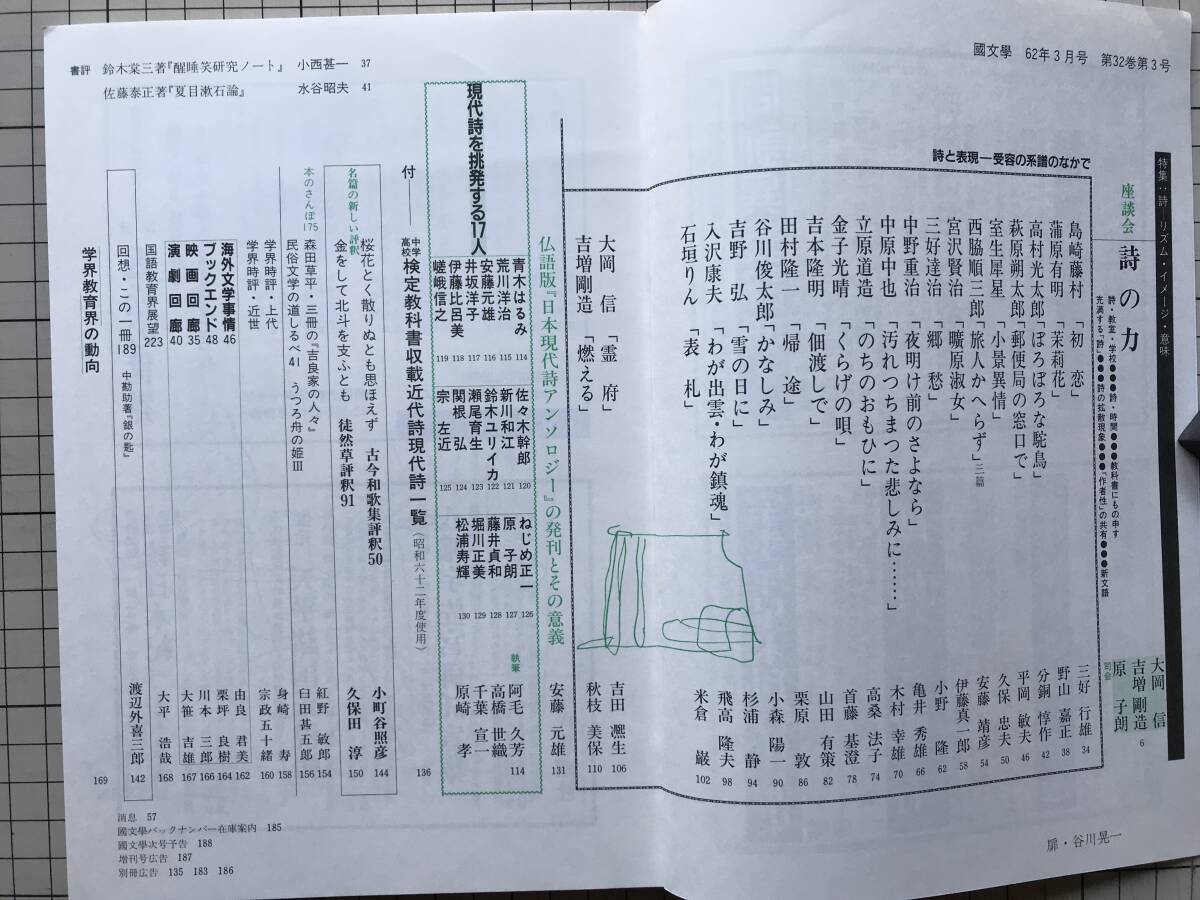 國文學 62年3月号 第32巻第3号
特集：詩―リズム・イメージ・意味
座談会 詩の力
詩・教室・学校●●●詩・時間●●●教科書にもの申す
充満する「詩」●●●詩の拡散現象●●●「作者性」の共有●●●新文語
大岡 信
吉増剛造
司会 原 子朗 6
詩と表現―受容の系譜のなかで
島崎藤村「初 恋」 三好行雄 34
蒲原有明「茉莉花」 野山嘉正 38
高村光太郎「ぼろぼろな駝鳥」 分銅惇作 42
萩原朔太郎「郵便局の窓口で」 平岡敏夫 46
室生犀星「小景異情」 久保忠夫 50
西脇順三郎「旅人かへらず」三篇 安藤靖彦 54
宮沢賢治「曠原淑女」 伊藤真一郎 58
三好達治「郷 愁」 小野 隆 62
中野重治「夜明け前のさよなら」 亀井秀雄 66
中原中也「汚れつちまつた悲しみに……」 木村幸雄 70
立原道造「のちのおもひに」 高桑法子 74
金子光晴「くらげの唄」 首藤基澄 78
吉本隆明「佃渡しで」 山田有策 82
田村隆一「帰 途」 栗原 敦 86
谷川俊太郎「かなしみ」 小森陽一 90
吉野 弘「雪の日に」 杉浦 静 94
入沢康夫「わが出雲・わが鎮魂」 飛高隆夫 98
石垣りん「表 札」 米倉 巌 102
大岡 信「霊 府」 吉田凞生 106
吉増剛造「燃える」 秋枝美保 110
仏語版『日本現代詩アンソロジー』の発刊とその意義 安藤元雄 131
現代詩を挑発する17人
青木はるみ 114
荒川洋治 115
安藤元雄 116
井坂洋子 117
伊藤比呂美 118
嵯峨信之 119
佐々木幹郎 120
新川和江 121
鈴木ユリイカ 122
瀬尾育生 123
関根 弘 124
宗 左近 125
ねじめ正一 126
原 子朗 127
藤井貞和 128
堀川正美 129
松浦寿輝 130
執筆 阿毛久芳 114
高橋世織
千葉宣一
原崎 孝
付――中学高校 検定教科書収載近代詩現代詩一覧（昭和六十二年度使用） 136
名篇の新しい評釈
桜花とく散りぬとも思ほえず 古今和歌集評釈50 小町谷照彦 144
金をして北斗を支ふとも 徒然草評釈91 久保田 淳 150
本のさんぽ175 森田草平・三冊の『吉良家の人々』 紅野敏郎 154
民俗文学の道しるべ41 うつろ舟の姫Ⅲ 臼田甚五郎 156
学界時評・上代 身﨑 寿 158
学界時評・近世 宗政五十緒 160
海外文学事情46 由良君美 162
ブックエンド48 栗坪良樹 164
映画回廊35 川本三郎 166
演劇回廊40 大笹吉雄 167
国語教育界展望223 大平浩哉 168
回想・この一冊189 中勘助著『銀の匙』 渡辺外喜三郎 142
学界教育界の動向 169
書評 鈴木棠三著『醒睡笑研究ノート』 小西甚一 37
佐藤泰正著『夏目漱石論』 水谷昭夫 41
消息 57
國文學バックナンバー在庫案内 185
國文學次号予告 188
増刊号広告 187
別冊広告 135 183 186
扉・谷川晃一